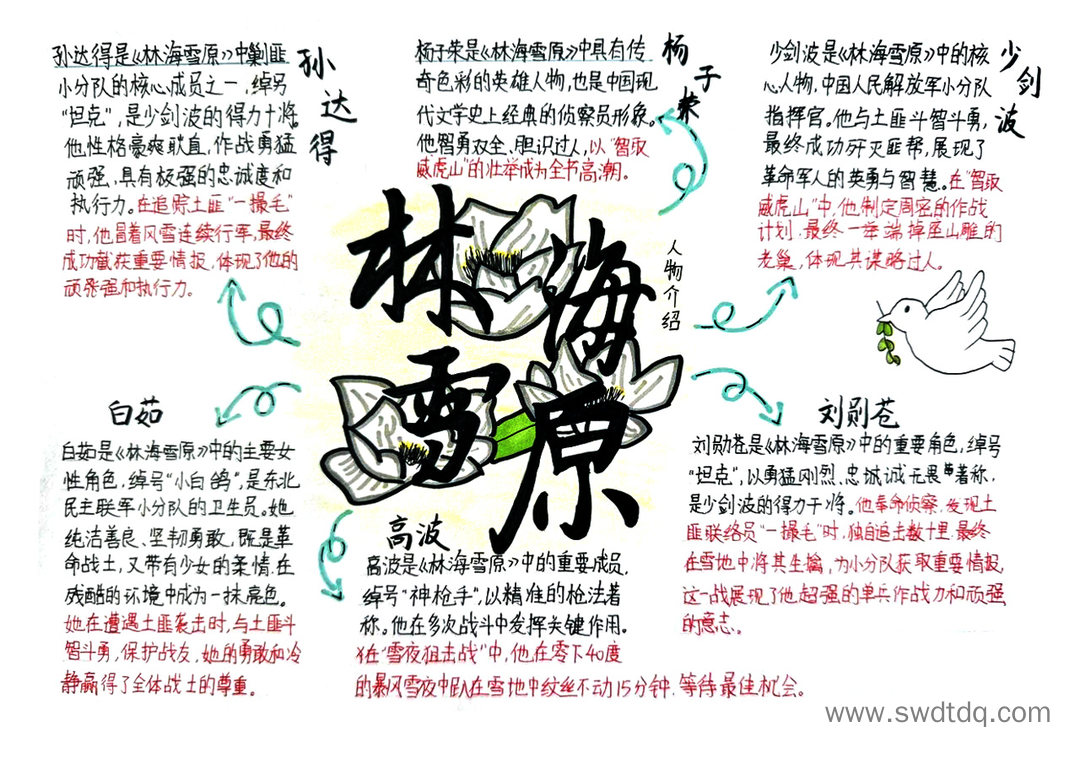 孙达得
孙达得是《林海雪原》中剿匪
小分队的核心成员之一，绰号
"坦克"，是少剑波的得力干将。
他性格豪爽耿直，作战勇猛
顽强，具有极强的忠诚度和
执行力。在追踪土匪"一撮毛"
时，他冒着风雪连续行军，最终
成功截获重要情报，体现了他的
顽强和执行力。
杨子荣
杨子荣是《林海雪原》中具有传
奇色彩的英雄人物，也是中国现
代文学史上经典的侦察员形象。
他智勇双全、胆识过人，以"智取
威虎山"的壮举成为全书高潮。
少剑波
少剑波是《林海雪原》中的核
心人物，中国人民解放军小分队
指挥官。他与土匪斗智斗勇，
最终成功歼灭匪帮，展现了
革命军人的英勇与智慧。在"智取
威虎山"中，他制定周密的作战
计划，最终一举端掉座山雕的
老巢，体现其谋略过人。
林海
雪原
人物介绍
白茹
白茹是《林海雪原》中的主要女
性角色，绰号"小白鸽"，是东北
民主联军小分队的卫生员。她
纯洁善良、坚韧勇敢，既是革
命战士，又带有少女的柔情，在
残酷的环境中成为一抹亮色。
她在遭遇土匪袭击时，与土匪斗
智斗勇，保护战友，她的勇敢和冷
静赢得了全体战士的尊重。
高波
高波是《林海雪原》中的重要成员，
绰号"神枪手"，以精准的枪法著
称。他在多次战斗中发挥关键作用。
在"雪夜狙击战"中，他在零下40度
的暴风雪夜中趴在雪地中纹丝不动15分钟，等待最佳机会。
刘勋苍
刘勋苍是《林海雪原》中的重要角色，绰号
"坦克"，以勇猛刚烈、忠诚无畏著称，
是少剑波的得力干将。他奉命侦察，发现土
匪联络员"一撮毛"时，独自追击数十里，最终
在雪地中将其生擒，为小分队获取重要情报，
这一战展现了他超强的单兵作战力和顽强
的意志。
www.swdtdq.com